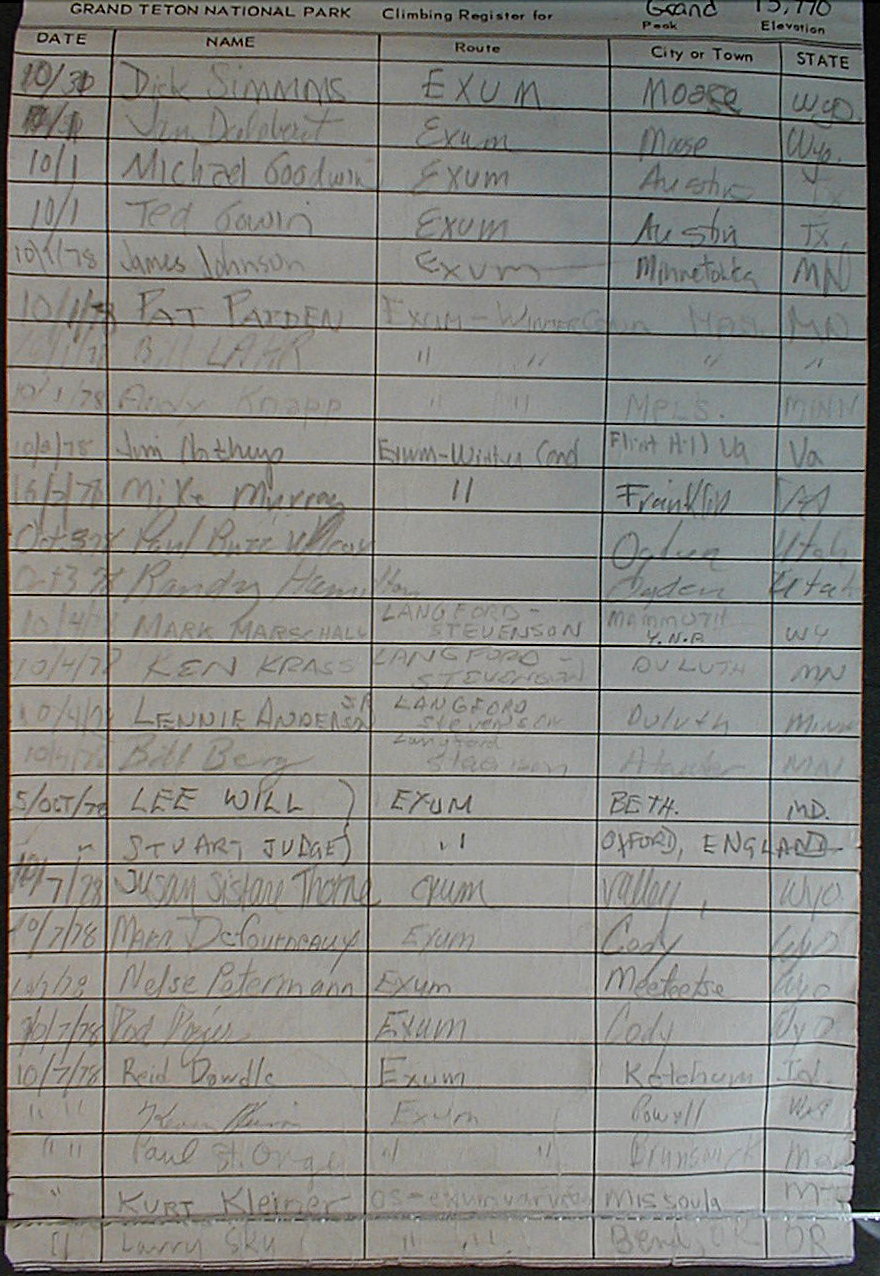 GRAND TETON NATIONAL PARK Climbing Register for Grand 13,770
Peak Elevation
DATE NAME Route City or Town STATE
10/30 Dick Simmms EXUM Moose Wyo.
Jim Exum Moose Wyo.
10/1 Michael Goodwin Exum Austin Tx
10/1 Ted Gowin Exum Austin Tx
10/1/78 James Johnson Exum Minnetonka MN
10/1/78 PAT PAYDEN EXUM-Winter MN
Bill LAHR " " " "
10/1/78 Andy Knapp " " MPLS. MINN
Jim Exum-Winter Cond Flint Hill Va Va
Mike Murray " Franklin
Oct 3 78 Paul Buzz Ogden Utah
Oct 3 78 Randy Hamilton Ogden Utah
10/4/78 MARK MARSCHALL LANGFORD-
STEVENSON MAMMOTH
Y.N.P. WY
10/4/78 KEN KRASS LANGFORD-
STEVENSON DULUTH MN
10/4/78 LENNIE ANDERSON JR LANGFORD
Stevenson Duluth Minn
Bill Berg Langford
Atwater MN
5/OCT/78 LEE WILL ) EXUM BETH. MD.
" STUART JUDGE ) " OXFORD, ENGLAND
10/7/78 Susan Sistare Thorne exum Valley, Wyo
10/7/78 Mark Exum Cody Wyo
10/7/78 Nelse Petermann Exum Meeteetse Wyo
10/7/78 Rod Exum Cody Wyo
10/7/78 Reid Dowdle Exum Ketchum Id.
" " Exum Powell Wyo
" " Paul St. Onge " " Brunswick
" KURT Kleiner Missoula MT
" Larry " " Bend, OR OR